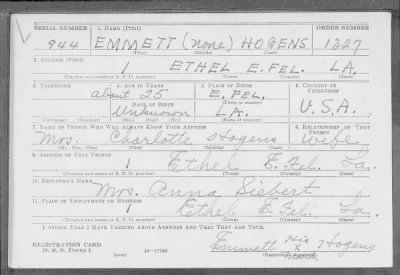 SERIAL NUMBER 1. NAME (Print) ORDER NUMBER
944 EMMETT (none) HOGENS 1327
(First) (Middle) (Last)
2. ADDRESS (Print)
1 ETHEL E. FEL. LA.
(Number and street or R. F. D. number) (Town) (County) (State)
3. TELEPHONE 4. AGE IN YEARS 5. PLACE OF BIRTH 6. COUNTRY OF CITIZENSHIP
about 25 E. FEL.
DATE OF BIRTH
Unknown LA. U.S.A.
7. NAME OF PERSON WHO WILL ALWAYS KNOW YOUR ADDRESS 8. RELATIONSHIP OF THAT PERSON
Mrs. Charlotte Hogens Wife
(Mr., Mrs., Miss) (First) (Middle) (Last)
9. ADDRESS OF THAT PERSON
1 Ethel E. Fel. La.
(Number and street or R. F. D. number) (Town) (County) (State)
10. EMPLOYER'S NAME
Mrs. Anna Siebert
11. PLACE OF EMPLOYMENT OR BUSINESS
1 Ethel E. Fel. La.
(Number and street or R. F. D. number) (Town) (County) (State)
I AFFIRM THAT I HAVE VERIFIED ABOVE ANSWERS AND THAT THEY ARE TRUE.
REGISTRATION CARD
D. S. S. Form 1 (over) 16—17105 Emmett His X Hogens